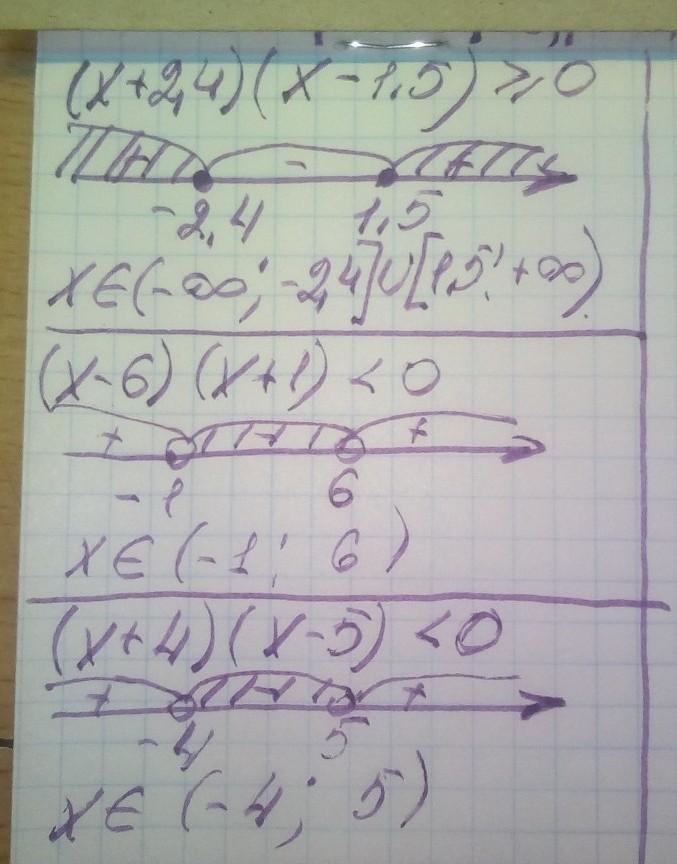 (x+2,4)(x-1,5) ≥ 0
+ - +
-2,4 1,5
x∈(-∞; -2,4]∪[1,5; +∞)
(x-6)(x+1) < 0
+ - +
-1 6
x∈(-1; 6)
(x+4)(x-5) < 0
+ - +
-4 5
x∈(-4; 5)